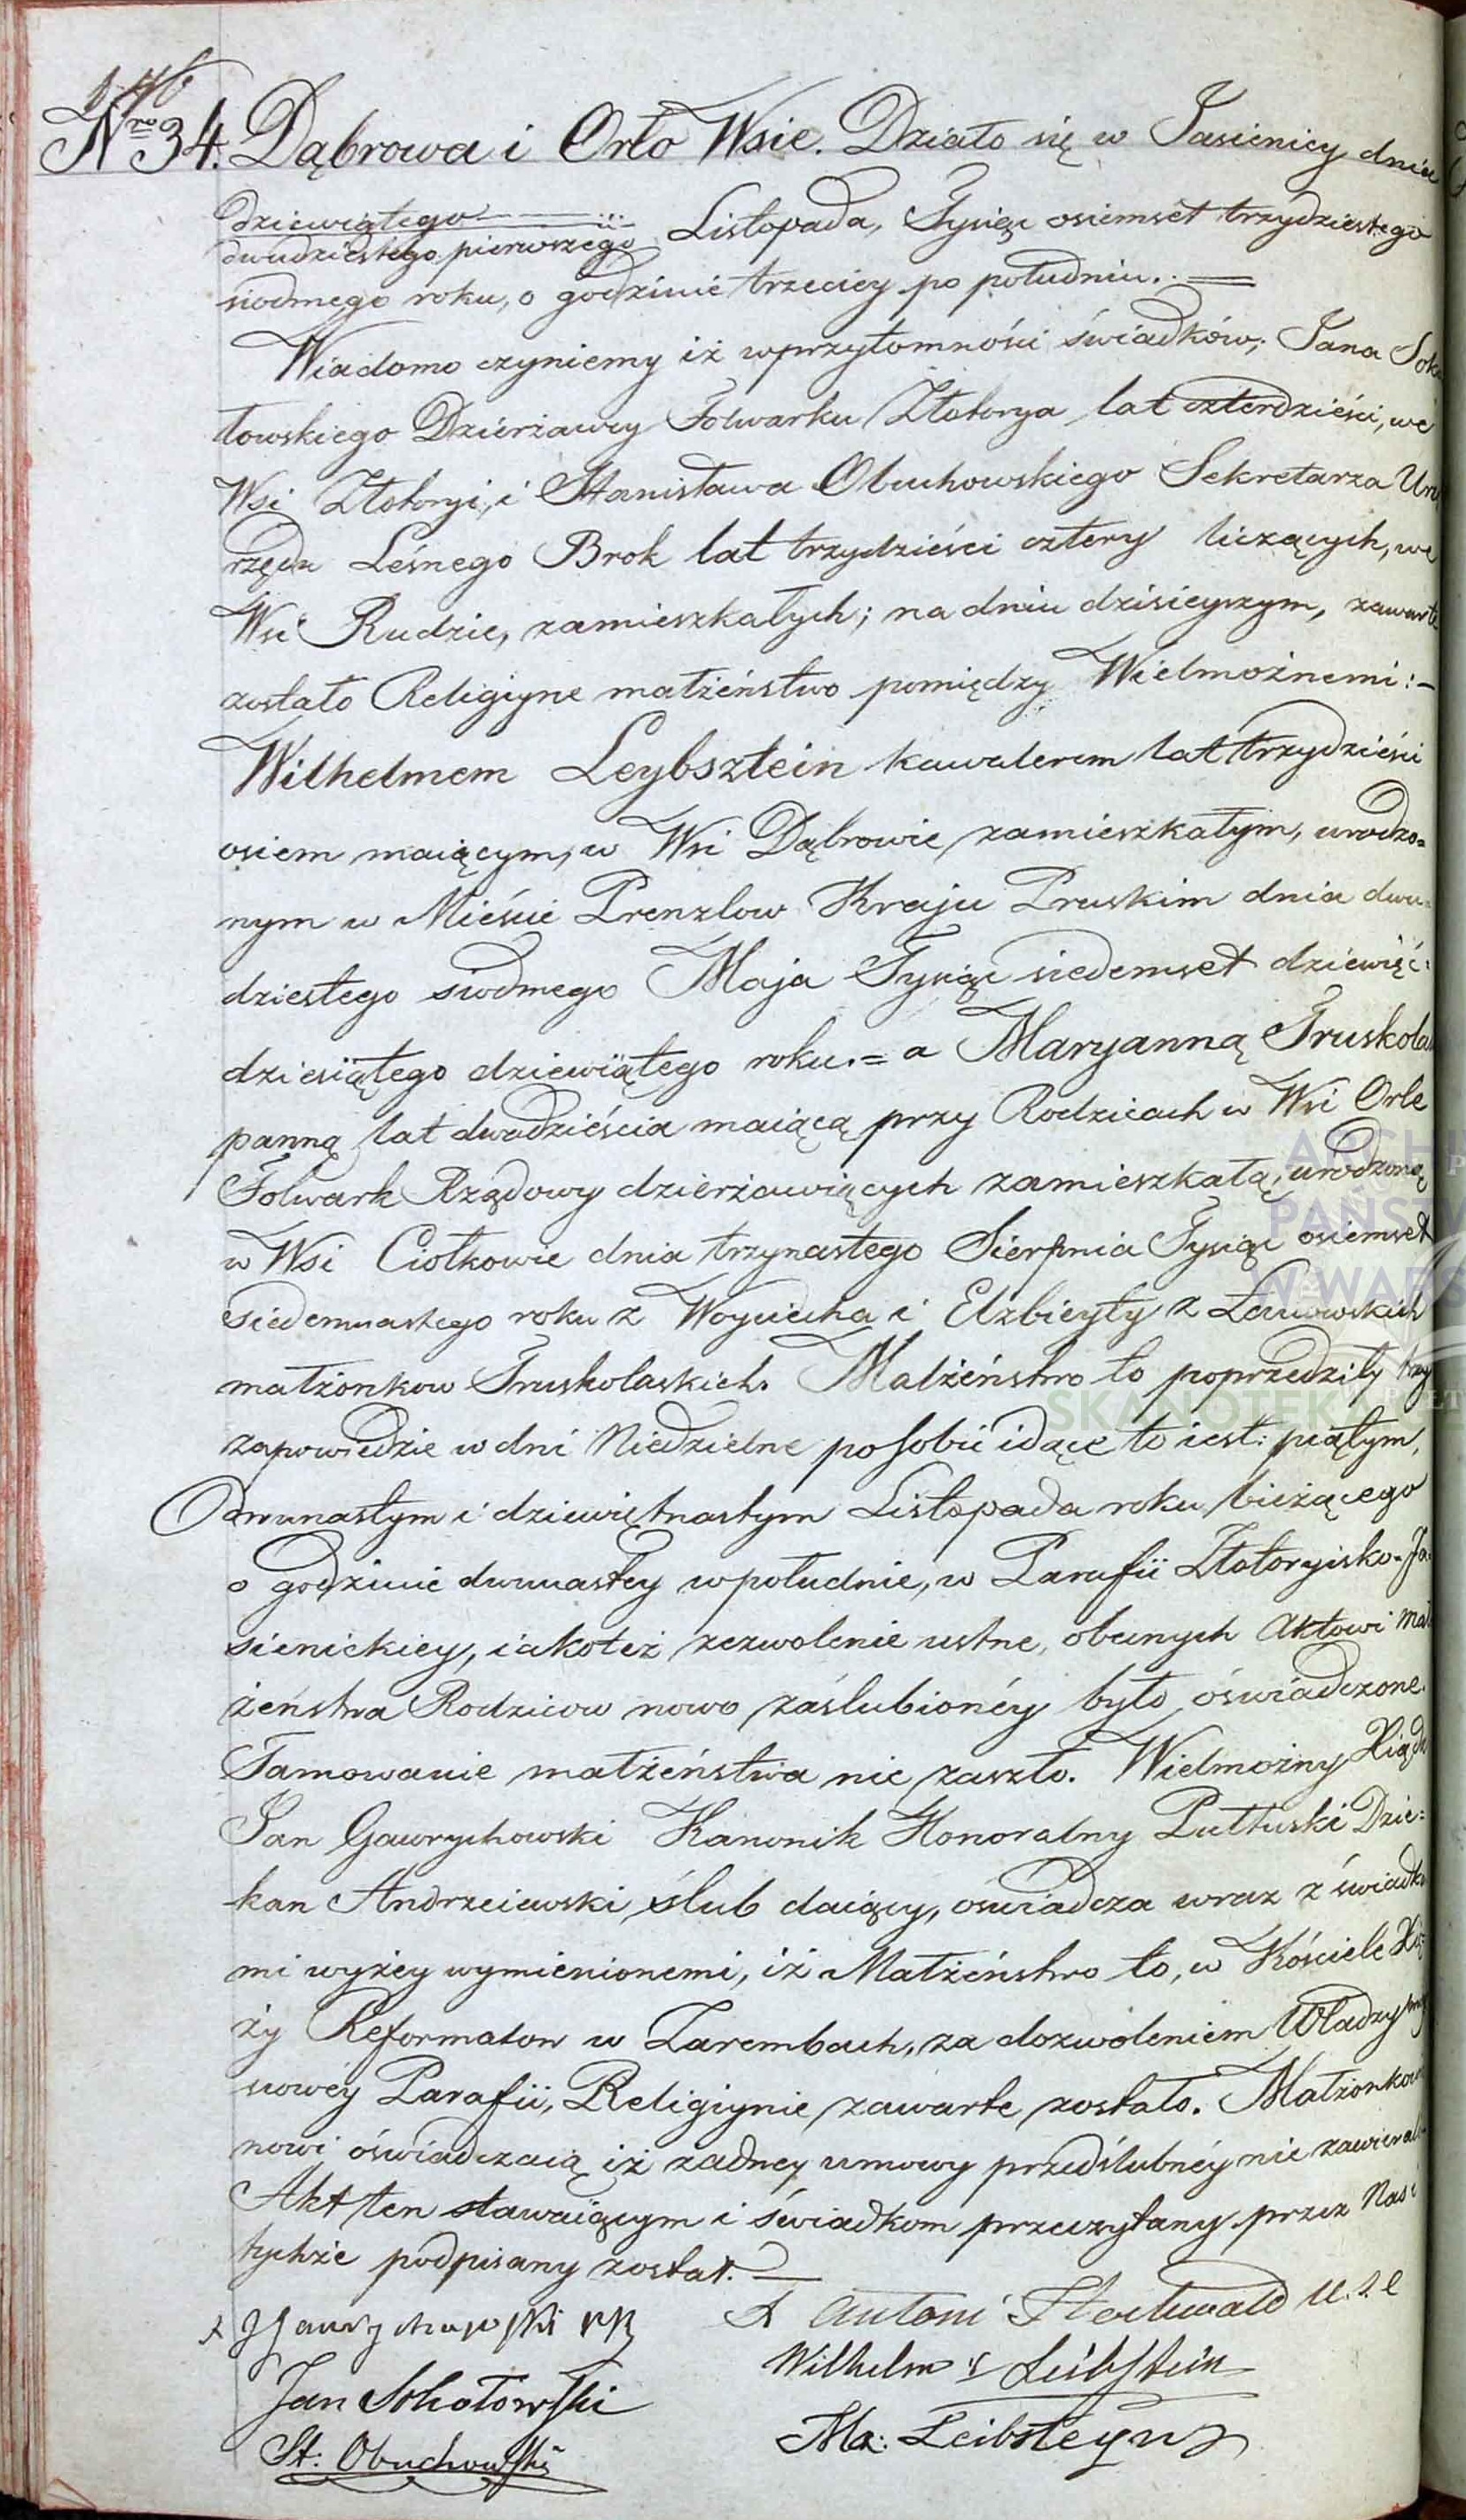 Nro 34. Dąbrowa i Orło Wsie. Działo się w Jasienicy dnia
dziewiątego
dwudziestego pierwszego Listopada, Tysiąc osiemset trzydziestego
siodmego roku, o godzinie trzeciey po południu.
Wiadomo czyniemy iż wprzytomności świadków; Jana Soko
łowskiego Dzierżawcy Folwarku Złotorya lat czterdzieści, we
Wsi Złotoryi, i Stanisława Obuchowskiego Sekretarza Urzę
rzędu Leśnego Brok lat trzydzieści cztery liczących, we
Wsi Rudzie, zamieszkałych; na dniu dzisieyszym, zawarte
zostało Religiyne małżeństwo pomiędzy Wielmożnemi:
Wilhelmem Leybsztein kawalerem lat trzydzieści
osiem maiącym, w Wsi Dąbrowie zamieszkałym, urodzo=
nym w Mieście Prenzlow Kraju Pruskim dnia dwu=
dziestego siodmego Maja Tysiąc siedemset dziewięć=
dziesiątego dziewiątego roku.= a Maryanną Truskolas
panną lat dwadzieścia maiącą przy Rodzicach w Wsi Orle
Folwark Rządowy dzierżawiących zamieszkałą, urodzoną
w Wsi Ciołkowie dnia trzynastego Sierpnia Tysiąc osiemset
siedemnastego roku z Woyciecha i Elzbiety z
małżonkow Truskolaskich. Małżeństwo to poprzedziły trzy
zapowiedzie w dni Niedzielne posobie idące to iest: piątym,
dwunastym i dziewiętnastym Listopada roku bieżącego
o godzinie dwunastey wpołudnie, w Parafii Złotoryisko-Ja=
sienickiey, iakoteż zezwolenie ustne, obecnych Aktowi mał
żeństwa Rodzicow nowo zaślubionéy było oświadczone.
Tamowanie małżeństwa nie zaszło. Wielmożny Xiądz
Jan Gawrychowski Kanonik Honoralny Pułtuski Dzie=
kan Andrzeiewski ślub daiący, oświadcza wraz z świadka
mi wyżey wymienionemi, iż Małżeństwo to, w Kościele Xię=
ży Reformatow w Zarembach, za dozwoleniem Władzy miey
scowéy Parafii, Religiynie zawarte zostało. Małżonkowie
nowi oświadczaią iż żadney umowy przedślubnéy nie zawierali.
Akt ten stawaiącym i świadkom przeczytany przez Nas i
tychże podpisany został.
X J Gawrychowski
X Antoni
Wilhelm Leibstein
Jan Sokołowski
Ma: Leibsteyn
St: Obuchowski
SKANOTEKA